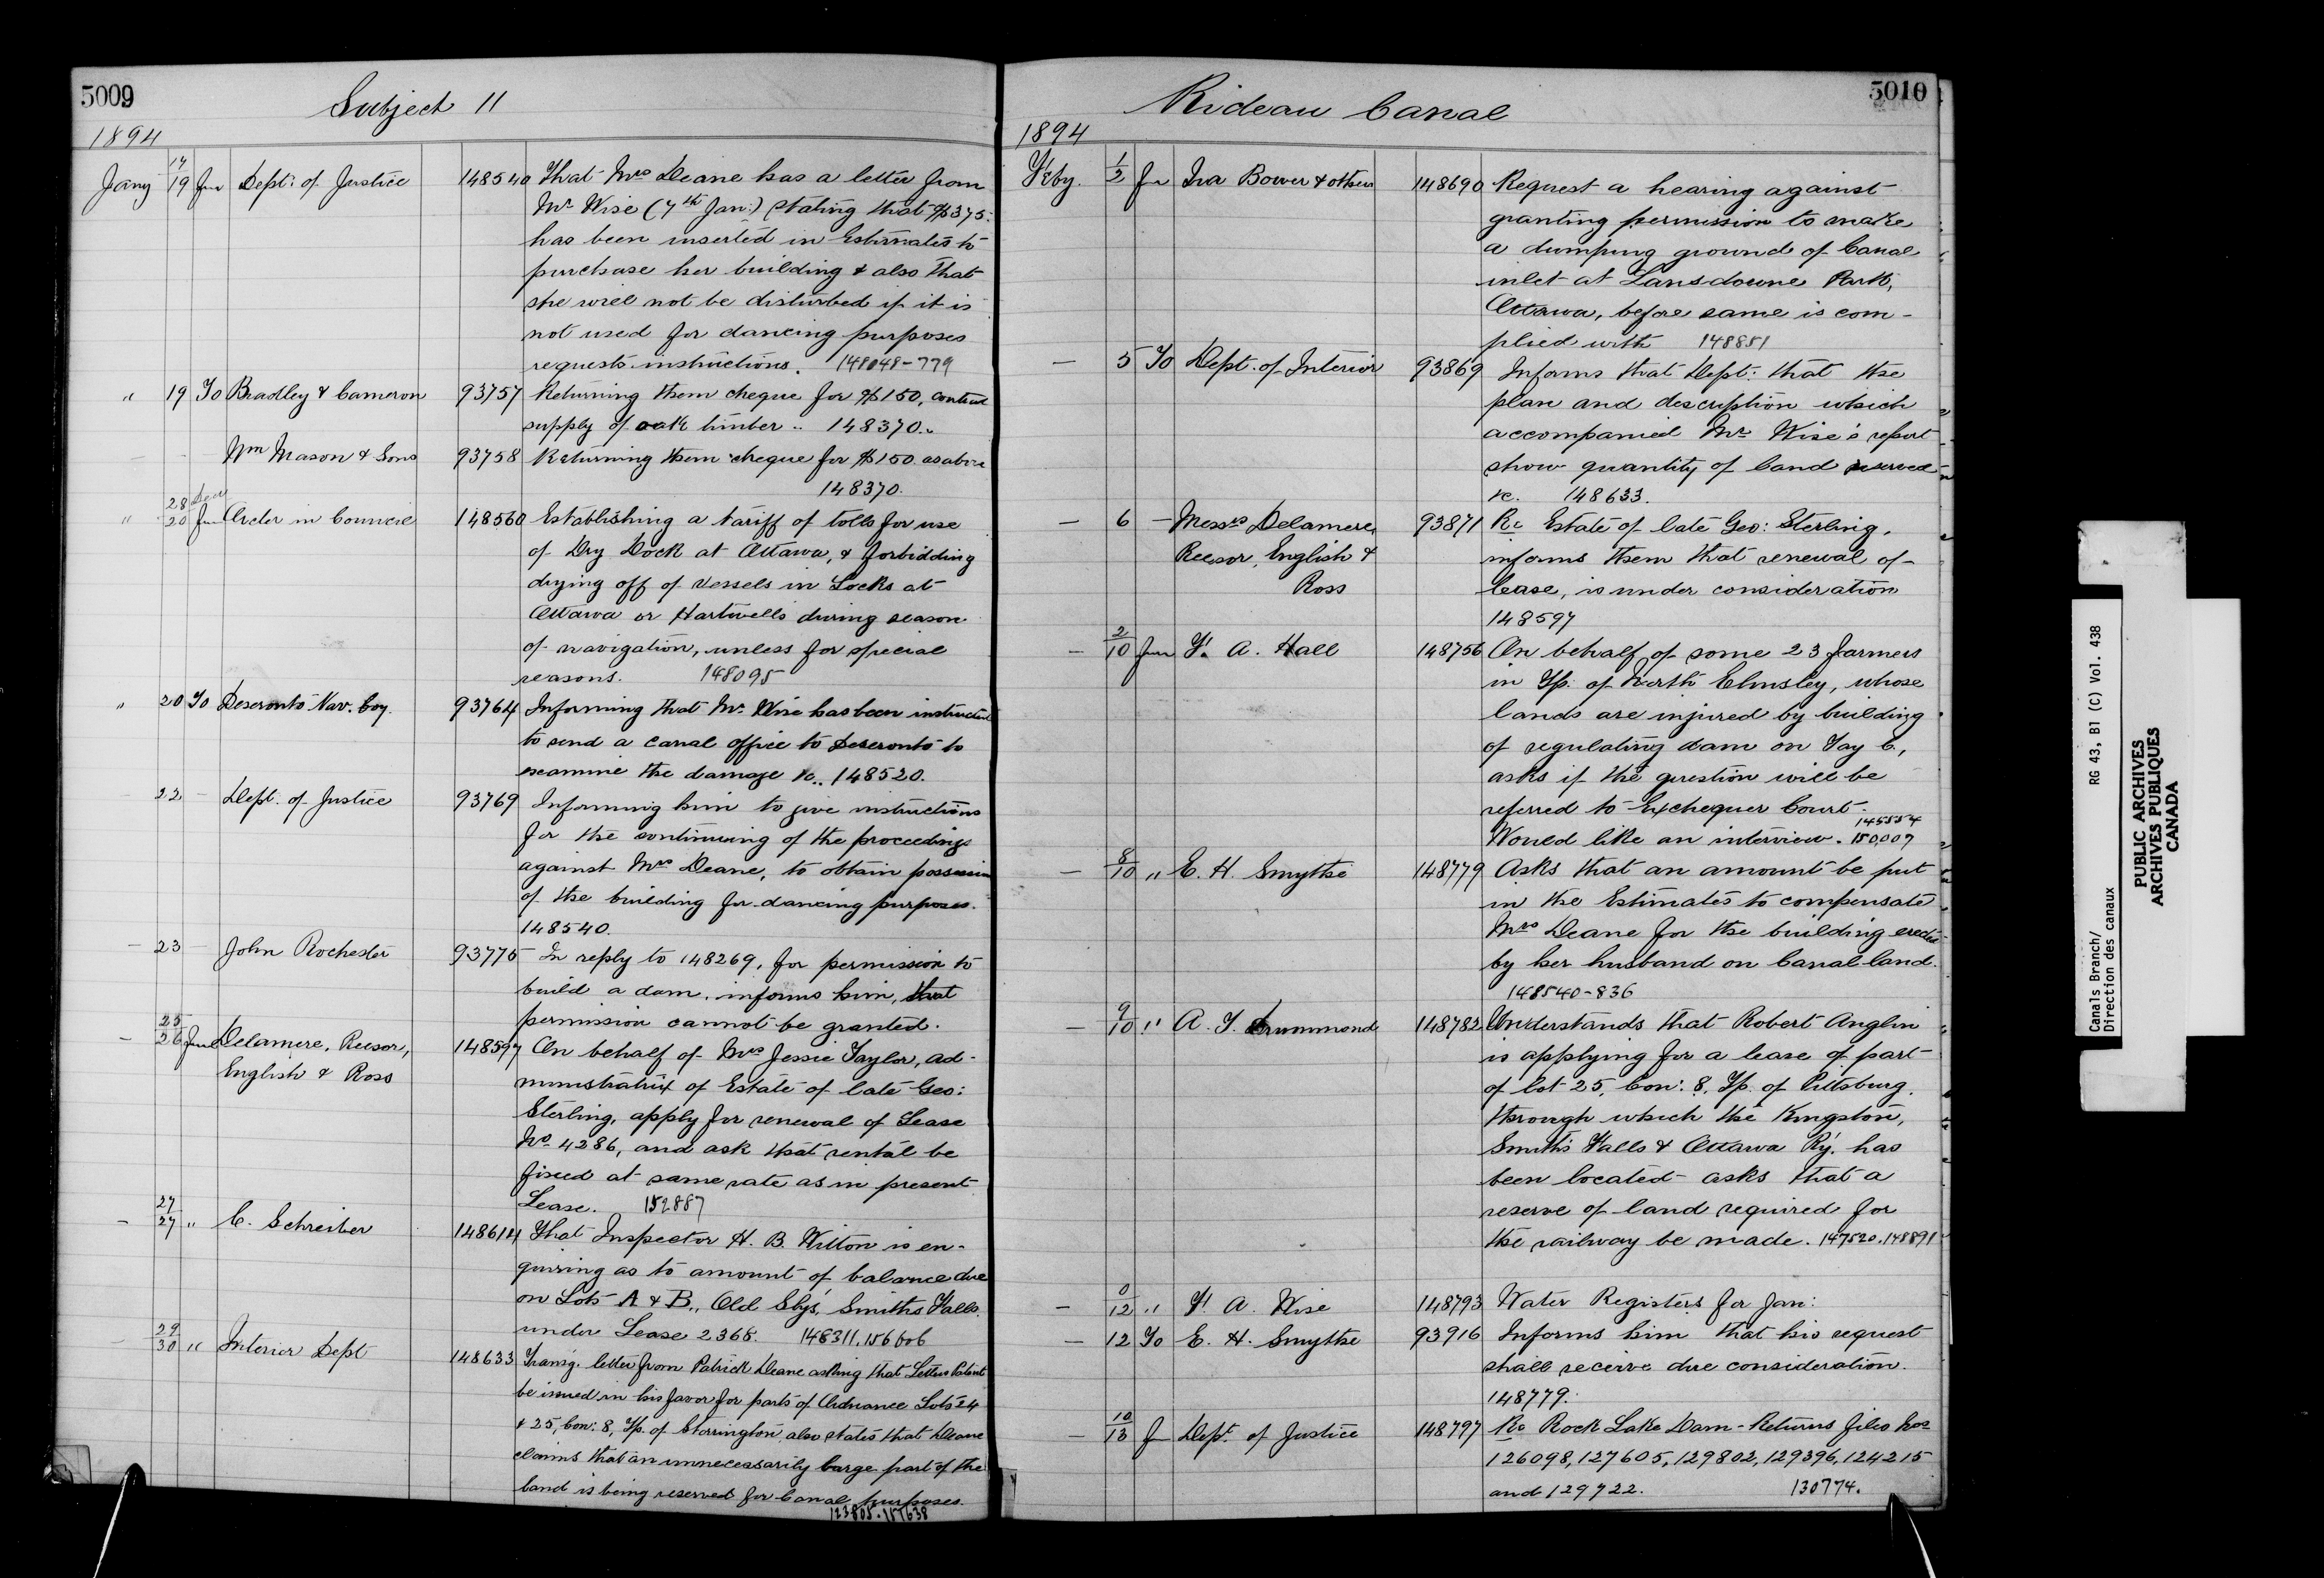 5009
Subject 11
1894
Jany 17/19 fm Dept: of Justice 148540 That Mrs Deane has a letter from
Mr Wise (7th Jan:) stating that $375:
has been inserted in Estimates to
purchase her building & also that
she will not be disturbed if it is
not used for dancing purposes
requests instructions. 148048-779
" 19 To Bradley & Cameron 93757 Returning them cheque for $150, contract
supply of oak timber .. 148370..
Wm Mason & Sons 93758 Returning them cheque for $150 as above
148370.
" 28 Dec/20 fm Order in Council 148560 Establishing a tariff of tolls for use
of Dry Dock at Ottawa, & forbidding
drying off of vessels in Locks at
Ottawa or Hartwells during season
of navigation, unless for special
reasons. 148095
" 20 To Deseronto Nav. Coy. 93764 Informing that Mr. Wise has been instructed
to send a canal office to Deseronto to
examine the damage &c.. 148520.
22 — Dept. of Justice 93769 Informing him to give instructions
for the continuing of the proceedings
against Mrs Deane, to obtain possession
of the building for dancing purposes.
148540.
— 23 — John Rochester 93775 In reply to 148269, for permission to
build a dam, informs him, that
permission cannot be granted.
— 25/26 fm Delamere, Reesor, 148597 On behalf of Mrs Jessie Taylor, ad-
English & Ross
ministratrix of Estate of late Geo:
Sterling, apply for renewal of Lease
No 4286, and ask that rental be
fixed at same rate as in present
Lease. 152887
— 27/27 " C. Schreiber 148614 That Inspector H. B. Witton is en-
quiring as to amount of balance due
on Lots A & B., Old Slys, Smiths Falls
under Lease 2368. 148311.156606
29/30 " Interior Dept 148633 Transg. letter from Patrick Deane asking that Letters Patent
be issued in his favor for parts of Ordnance Lots 24
& 25, Con: 8, Tp. of Storrington, also states that Deane
claims that an unnecessarily large part of the
land is being reserved for Canal purposes.
123805.157638
5010
Rideau Canal
1894
Feby. 1/2 fm Ira Bower & others 148690 Request a hearing against
granting permission to make
a dumping ground of Canal
inlet at Lansdowne Park,
Ottawa, before same is com-
plied with 148851
— 5 To Dept. of Interior 93869 Informs that Dept: that the
plan and description which
accompanied Mr Wise's report
show quantity of land reserved
&c. 148633.
— 6 — Messrs Delamere, 93871 Re Estate of late Geo: Sterling,
Reesor, English & informs them that renewal of
Ross lease, is under consideration
148597
— 2/10 fm F. A. Hall 148756 On behalf of some 23 farmers
in Tp. of North Elmsley, whose
lands are injured by building
of regulating dam on Tay C.,
asks if the question will be
referred to Exchequer Court.
145554
Would like an interview. 150,007
— 8/10 " E. H. Smythe 148779 Asks that an amount be put
in the Estimates to compensate
Mrs Deane for the building erected
by her husband on Canal land.
148540-836
— 9/10 " A. T. Drummond 148782 Understands that Robert Anglin
is applying for a lease of part
of lot 25, Con: 8, Tp. of Pittsburg,
through which the Kingston,
Smiths Falls & Ottawa Ry. has
been located - asks that a
reserve of land required for
the railway be made. 147520.148891
— 0/12 " F. A. Wise 148793 Water Registers for Jan:
— 12 To E. H. Smythe 93916 Informs him that his request
shall receive due consideration.
148779.
— 10/13 fm Dept. of Justice 148797 Re Rock Lake Dam - Returns files Nos
126098, 127605, 129802, 129396, 124215
and 129722. 130774.
Canals Branch/ RG 43, B1 (C) Vol. 438
Direction des canaux
PUBLIC ARCHIVES
ARCHIVES PUBLIQUES
CANADA